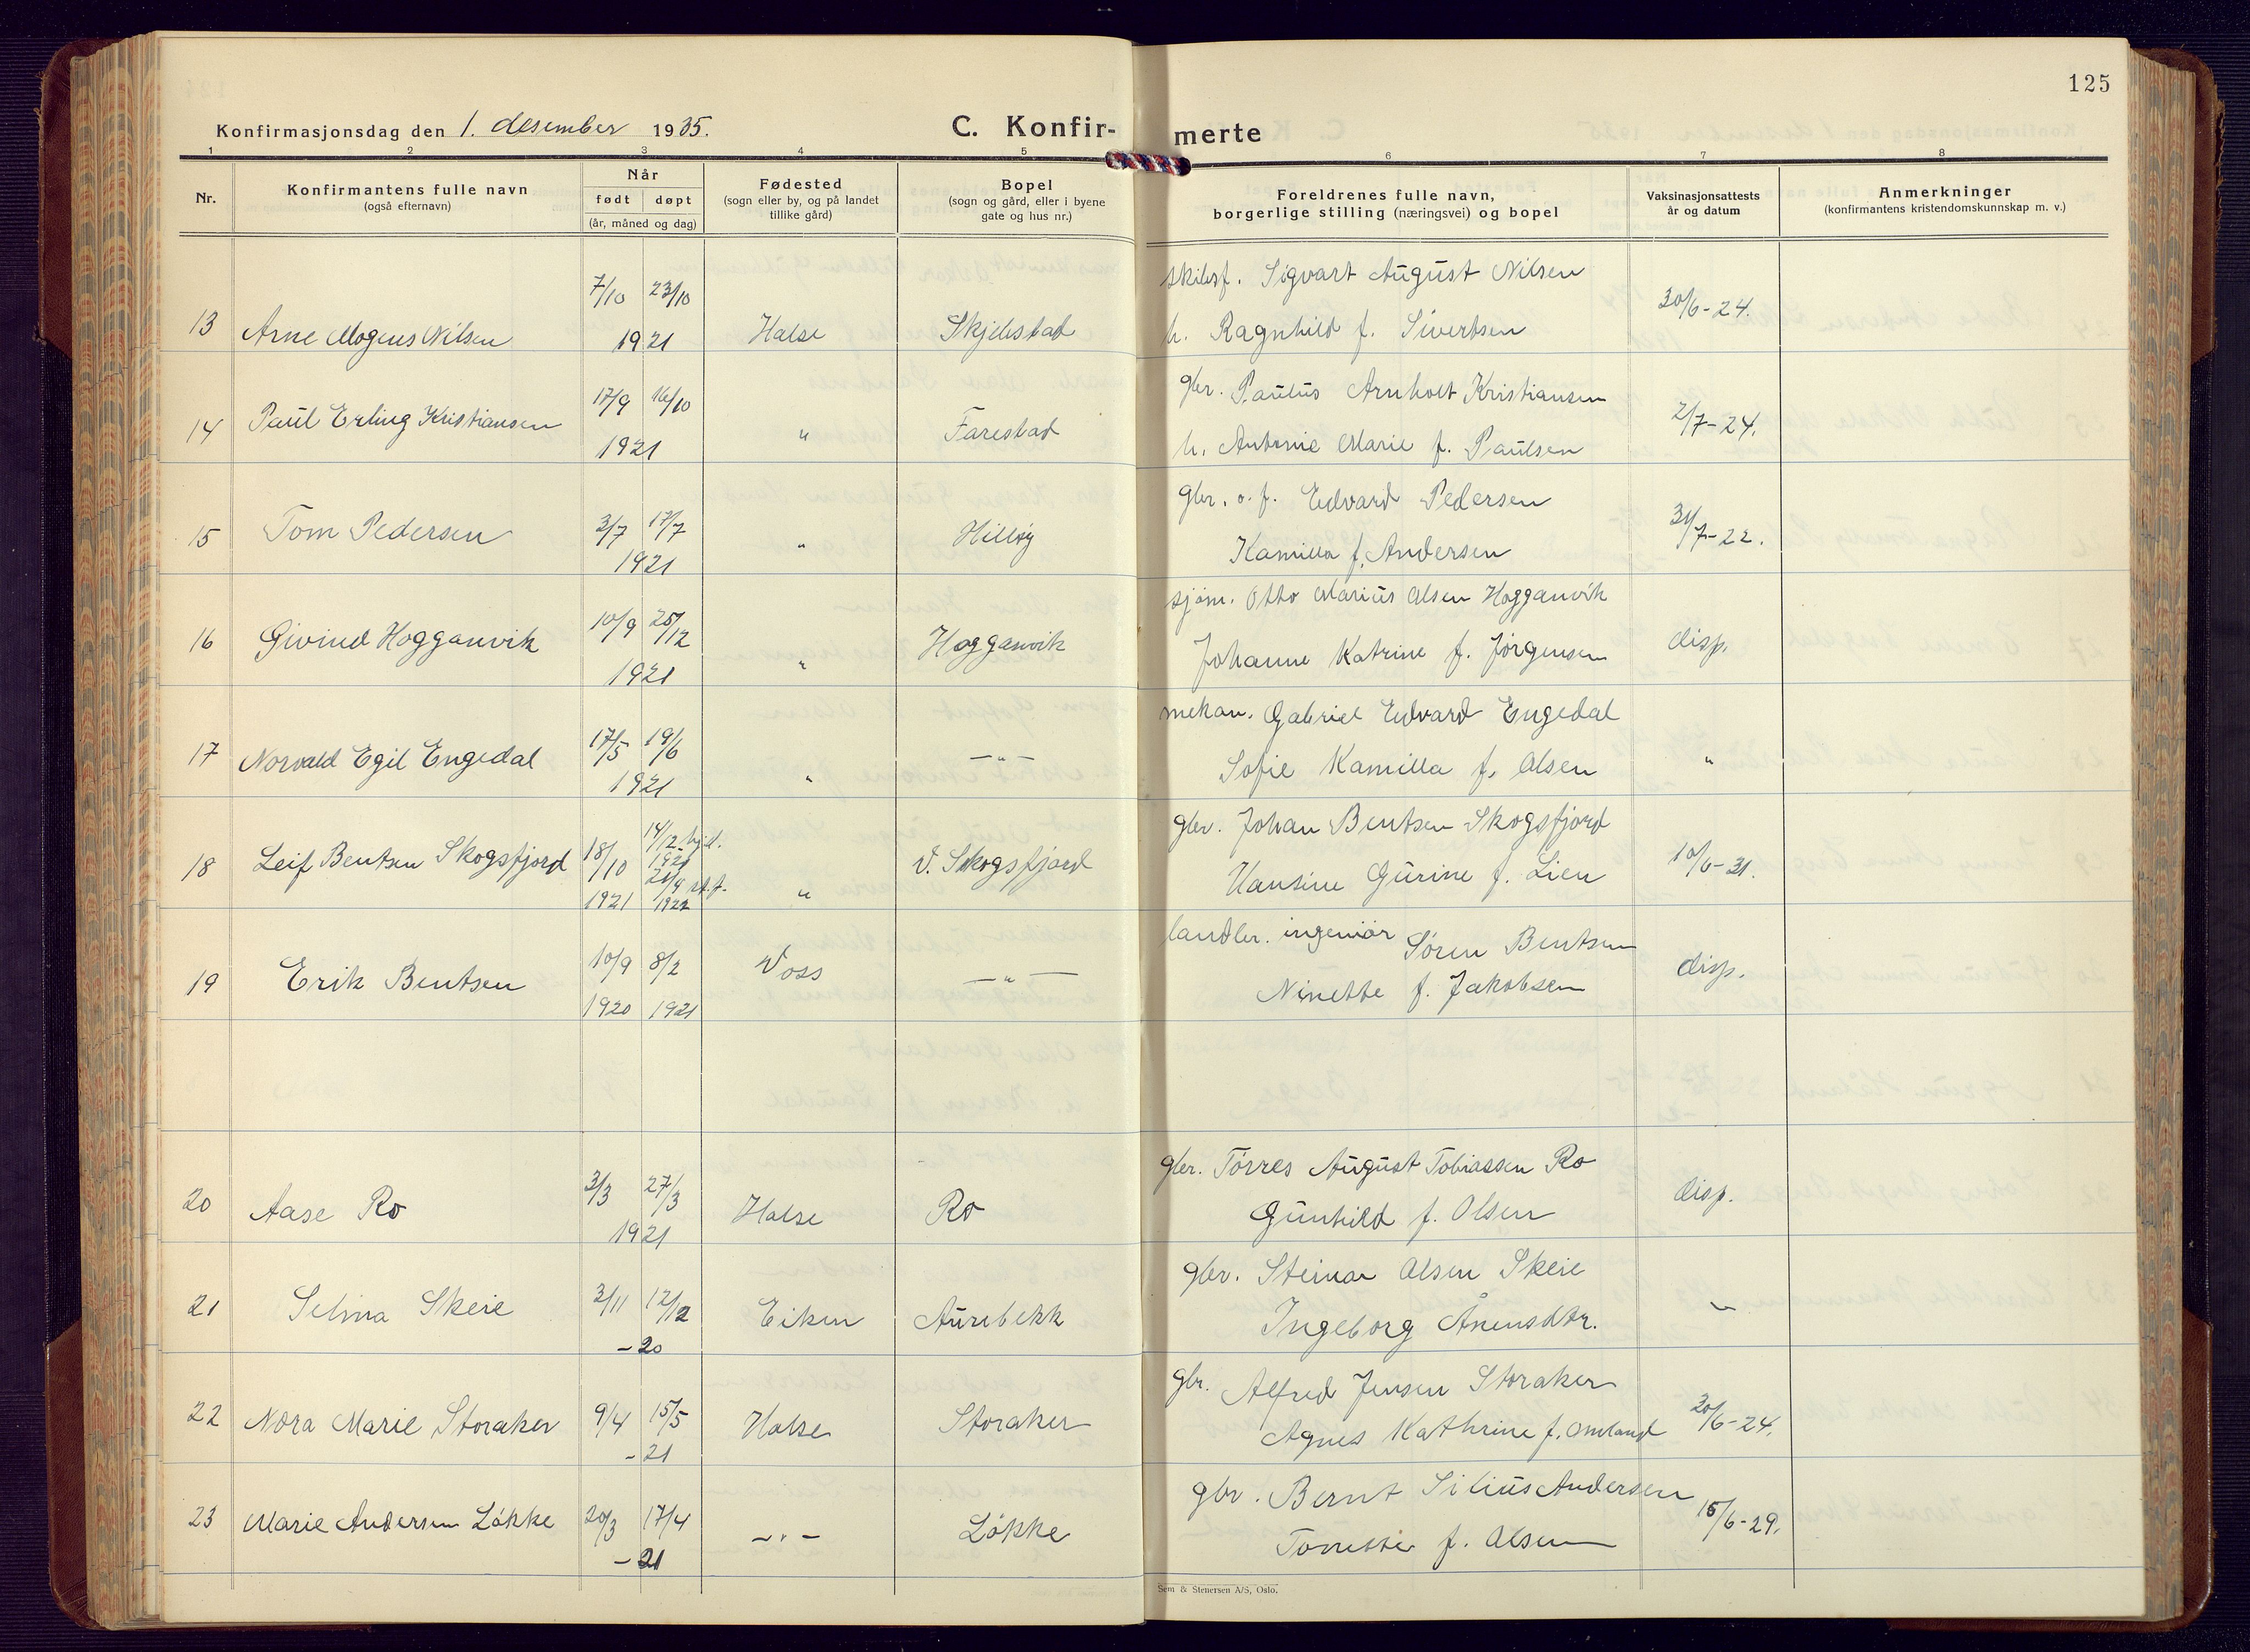 125
Konfirmasjonsdag den 1. desember 1935.
C. Konfir-
merte
1 2 3 4 5 6 7 8
Nr.
Konfirmantens fulle navn
(også efternavn)
Når
født døpt
(år, måned og dag)
Fødested
(sogn eller by, og på landet
tillike gård)
Bopel
(sogn og gård, eller i byene
gate og hus nr.)
Foreldrenes fulle navn,
borgerlige stilling (næringsvei) og bopel
Vaksinasjonsattests
år og datum
Anmerkninger
(konfirmantens kristendomskunnskap m. v.)
7/10 23/10 skibsf. Sigvart August Nilsen 30/6-24.
13 Arne Mogens Nilsen 1921 Halse Skjebstad h. Ragnhild f. Sivertsen
17/9 16/10 gbr. Paulus Arnholt Kristiansen
14 Paul Erling Kristiansen 1921 " Farestad h. Antonie Marie f. Paulsen 2/7-24.
gbr. o. f. Edvard Pedersen
15 Tom Pedersen 3/7 17/7 " Hilløy 31/7-22.
1921 Kamilla f. Andersen
sjøm. Otto Marius Olsen Hogganvik
16 Givind Hogganvik 10/9 25/12 " Hogganvik disp.
1921 Johanne Katrine f. Jørgensen
mekan. Gabriel Edvard Engedal
17 Norvald Egil Engedal 17/5 19/6 " —"— "
1921 Sofie Kamilla f. Olsen
14/12 hjd. gbr. Johan Bentsen Skogsfjord
18 Leif Bentsen Skogsfjord 18/10 1921 V. Skogsfjord 10/6-31.
21/9 st.f. " Hansine Gurine f. Lien
1921 1922
landbr. ingeniør Søren Bentsen
19 Erik Bentsen 10/9 8/2 Voss —"— disp.
1920 1921 Ninette f. Jakobsen
gbr. Tørres August Tobiassen Ro
20 Aase Ro 3/3 27/3 Halse Ro disp.
1921 Gunhild f. Olsen
gbr. Steinar Olsen Skeie
21 Selma Skeie 3/11 12/12 Eiken Aurebekk "
-20 Ingeborg Ånensdtr.
gbr. Alfred Jensen Storaker
22 Nora Marie Storaker 9/4 15/5 Halse Storaker 30/6-24.
-21 Agnes Kathrine f. Omland
gbr. Bernt Silius Andersen
23 Marie Andersen Løkke 20/3 17/4 —"— Løkke 15/6-29.
-21 Tomette f. Olsen
Sem & Stenersen A/S, Oslo.